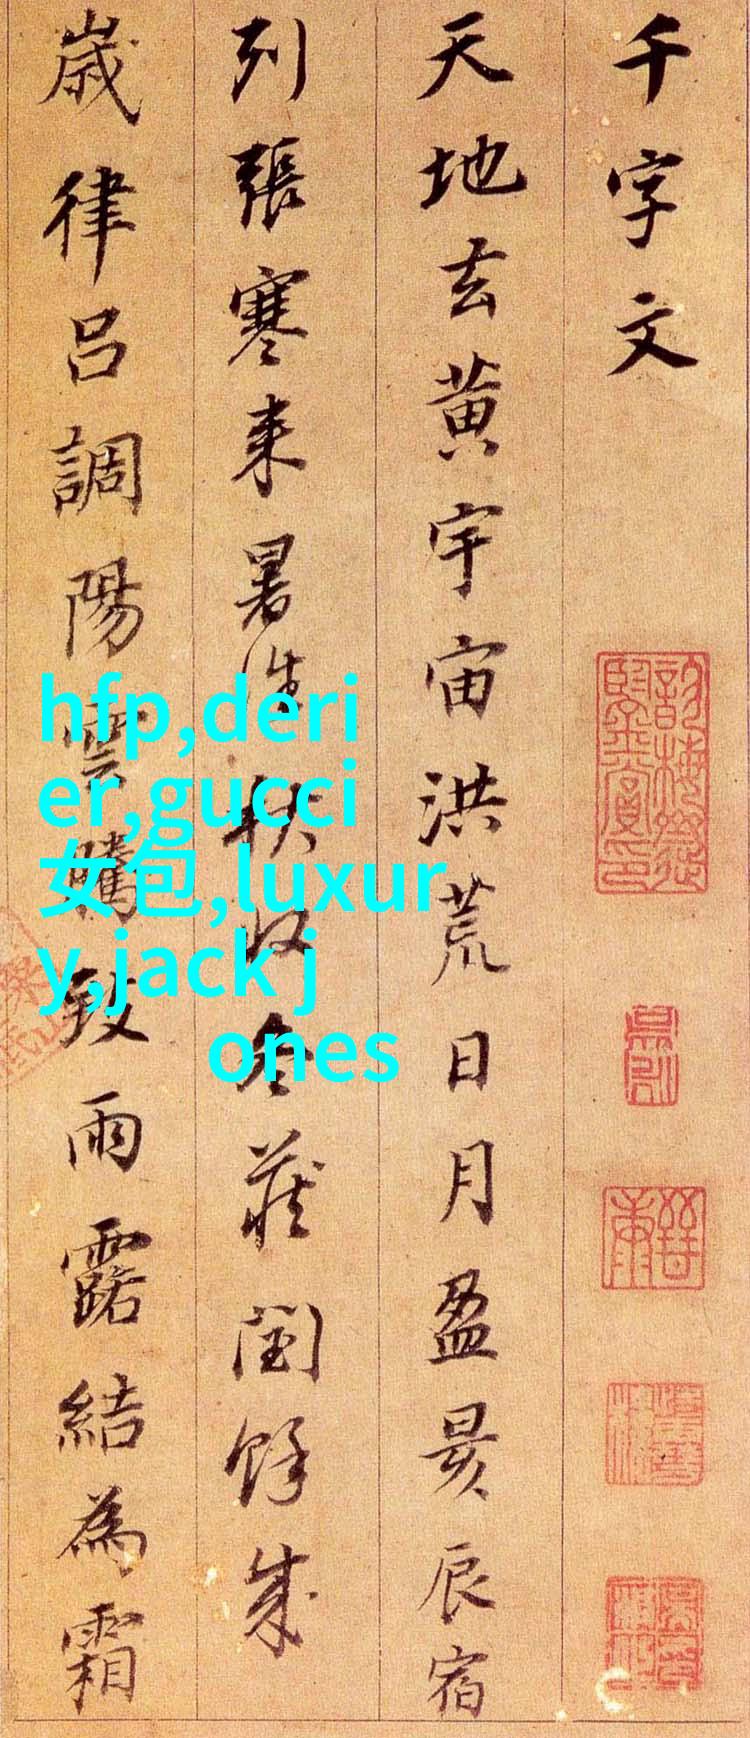 千字文
天地玄黄宇宙洪荒日月盈昃辰宿
列張寒来暑往秋收冬蔵閏餘成
歲律吕調陽雲騰致雨露結為霜
hfp,deri
er,gucci
女包,luxur
y,jack j
ones